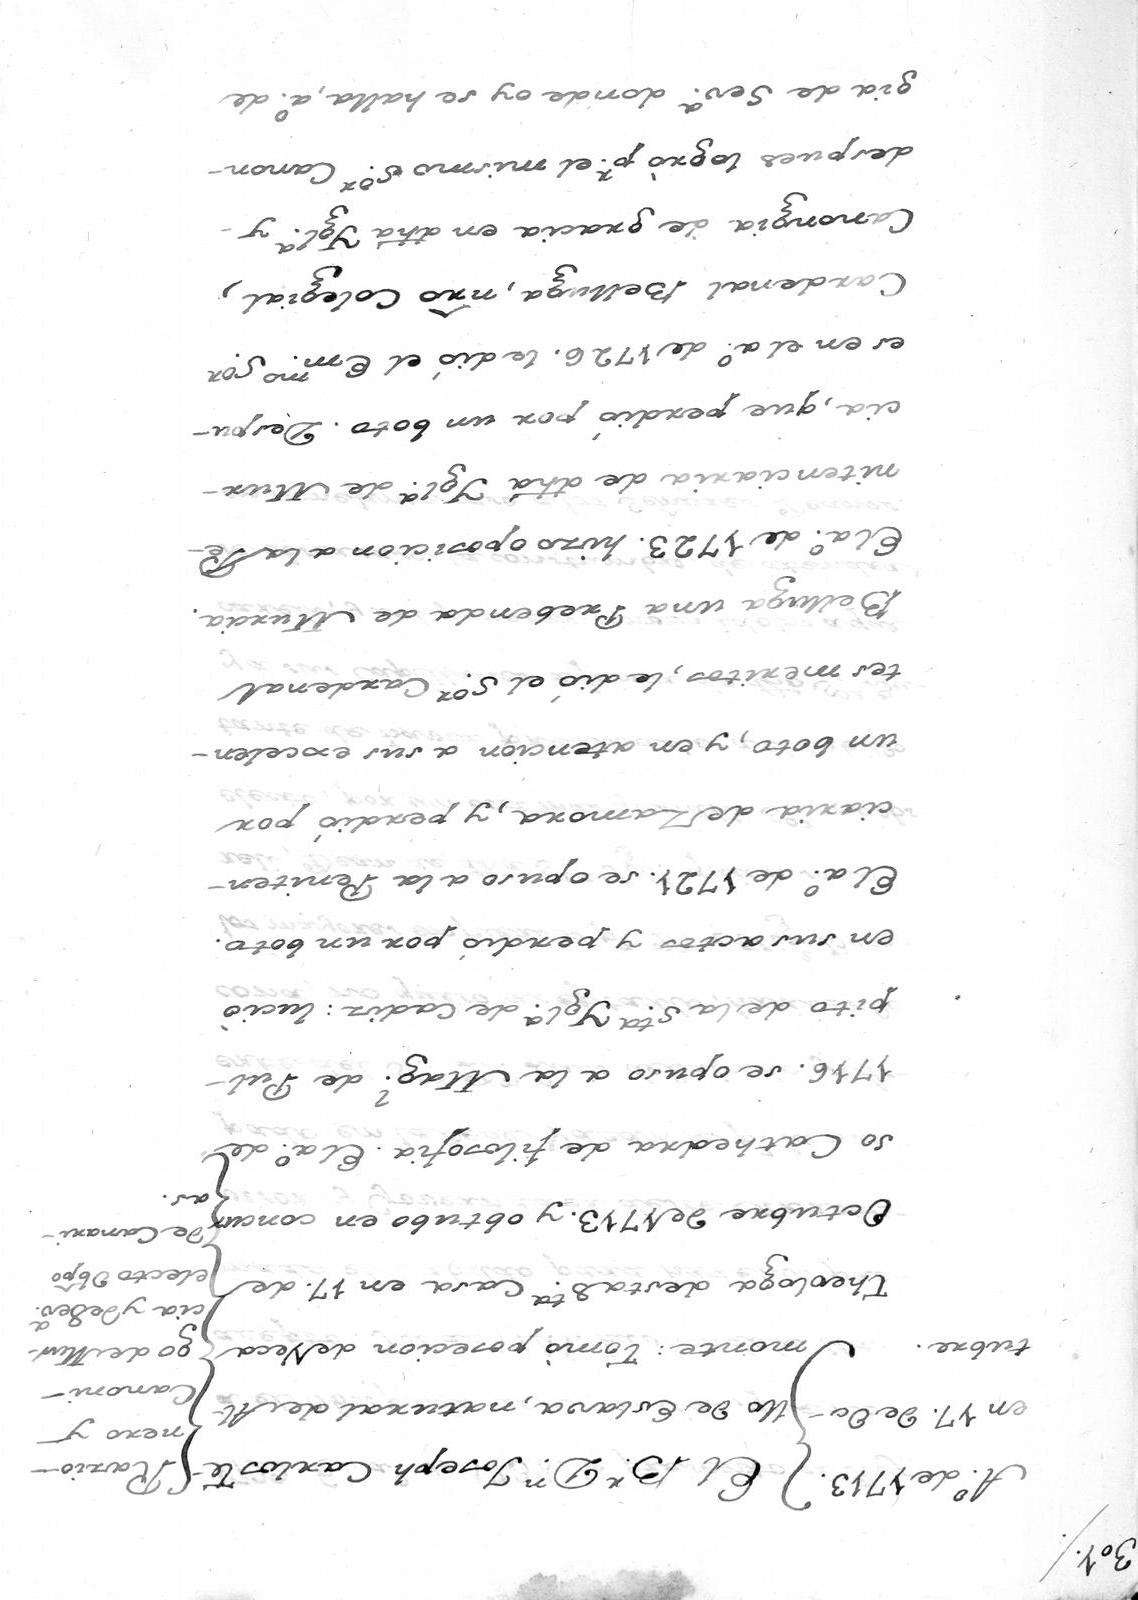 301.
A.º de 1713.
en 17. de Oc-
tubre.
El B.r D.n Joseph Carlos te-
llo de Eslava, natural de Al-
monte: Tomò posecion de Veca
Theologa desta S.ta Casa en 17. de
Octubre de 1713. y obtubo en concur
so Cathedra de filosofia. El a.º de
1716. se opuso a la Mag.l de Pul-
pito de la S.ta Ygl.a de Cadiz: luciò
en sus actos y perdiò por un boto.
El a.º de 1721. se opuso a la Peniten-
ciaria de Zamora, y perdiò por
un boto, y en atencion a sus excelen-
tes meritos, le diò el S.or Cardenal
Belluga una Prebenda de Murcia.
El a.º de 1723. hizo oposicion a la Pe-
nitenciaria de dha Ygl.a de Mur-
cia, que perdiò por un boto. Despu-
es en el a.º de 1726. le diò el Em.mo S.or
Cardenal Belluga, nro Colegial,
Canongia de gracia en dha Ygl.a y
despues logrò p.r el mismo S.or Canon-
gia de Sev.a donde oy se halla, a.º de
Razio-
nero y
Canoni-
go de Mur-
cia y de Sev.a
electo Obpo
de Canari-
as.